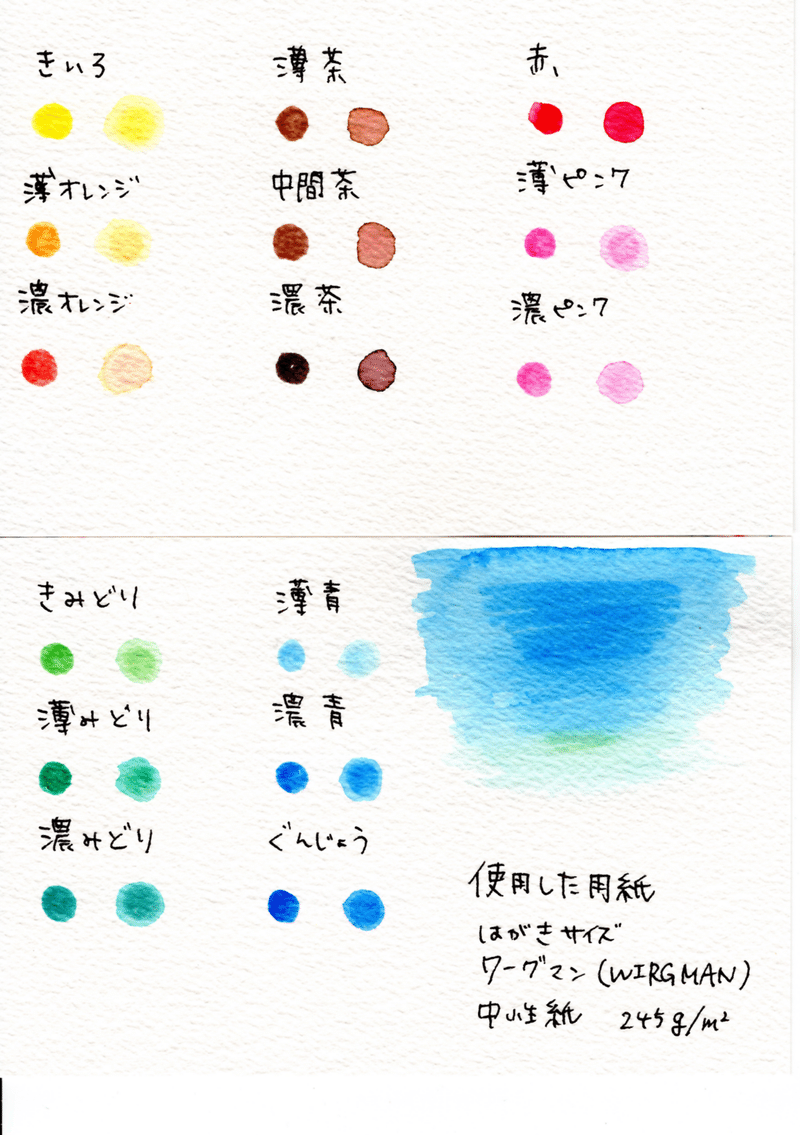 きいろ
薄茶
赤、
薄オレンジ
中間茶
薄ピンク
濃オレンジ
濃茶
濃ピンク
きみどり
薄青
薄みどり
濃青
濃みどり
ぐんじょう
使用した用紙
はがきサイズ
ワーグマン(WIRGMAN)
中性紙 245g/m²